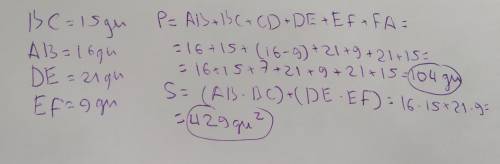 BC=15дм
AB=16дм
DE=21дм
EF=9дм
P=AB+BC+CD+DE+EF+FA=
=16+15+(16-9)+21+9+21+15=
=16+15+7+21+9+21+15=104дм
S=(AB·BC)+(DE·EF)=16·15+21·9=
=429дм²